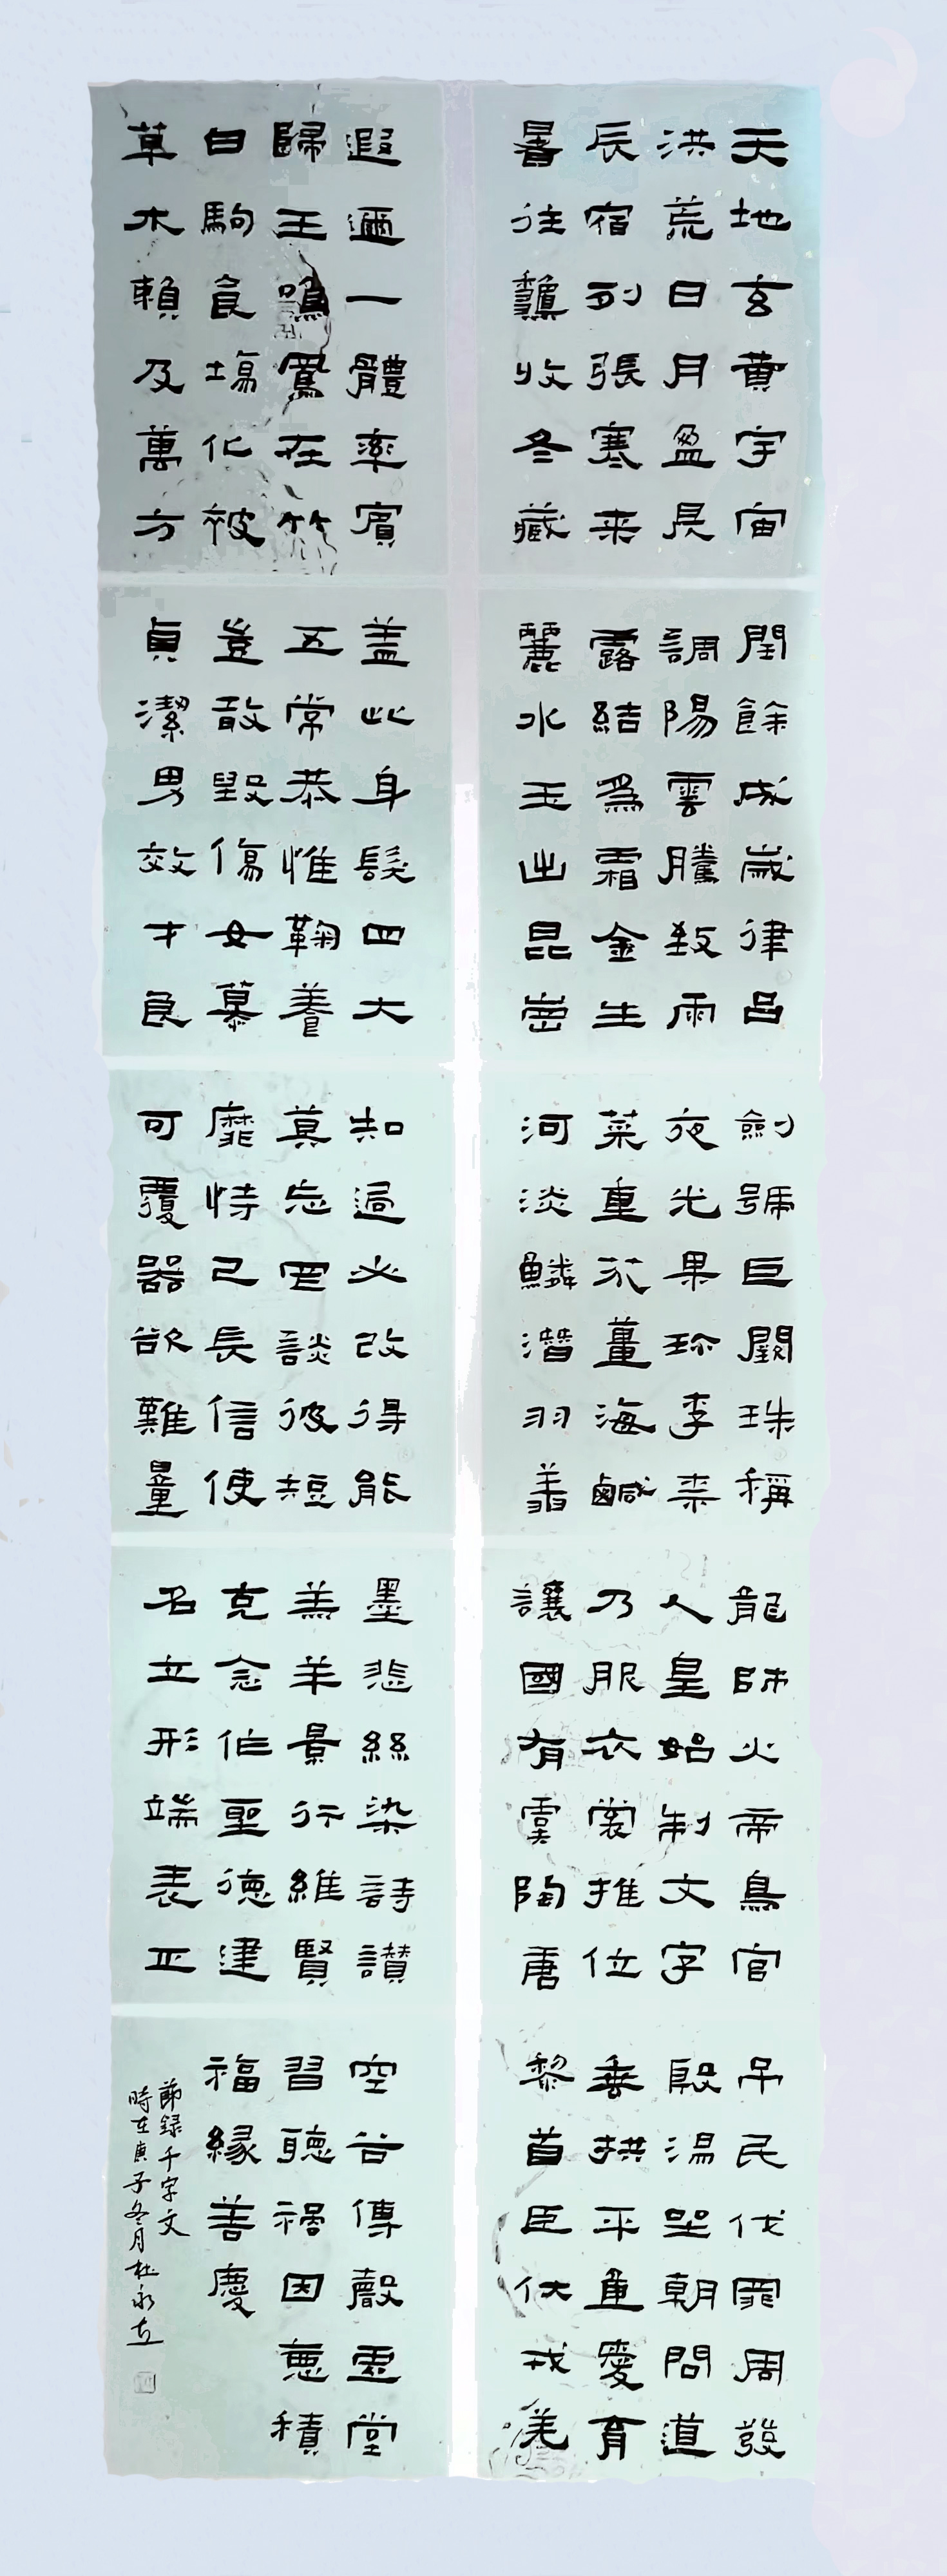 天地玄黄宇宙
洪荒日月盈昃
辰宿列張寒来
暑往龝收冬藏
閏餘成歲律吕
調陽雲騰致雨
露結爲霜金生
麗水玉出昆崗
劍號巨闕珠稱
夜光果珍李柰
菜重芥薑海鹹
河淡鱗潛羽翔
龍師火帝鳥官
人皇始制文字
乃服衣裳推位
讓國有虞陶唐
吊民伐罪周發
殷湯坐朝問道
垂拱平章愛育
黎首臣伏戎羌
遐邇一體率賓
歸王鳴鳳在竹
白駒食場化被
草木賴及萬方
蓋此身髮四大
五常恭惟鞠養
豈敢毀傷女慕
貞潔男效才良
知過必改得能
莫忘罔談彼短
靡恃己長信使
可覆器欲難量
墨悲絲染詩讚
羔羊景行維賢
克念作聖德建
名立形端表正
空谷傳聲虛堂
習聽禍因惡積
福緣善慶
節録千字文
時在庚子冬月杜永